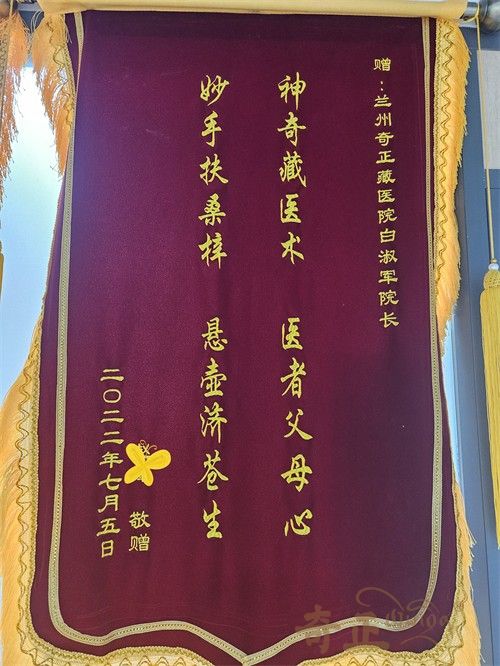 赠：兰州奇正藏医院白淑军院长
神奇藏医术 医者父母心
妙手扶桑梓 悬壶济苍生
敬赠
二〇二二年七月五日
奇正